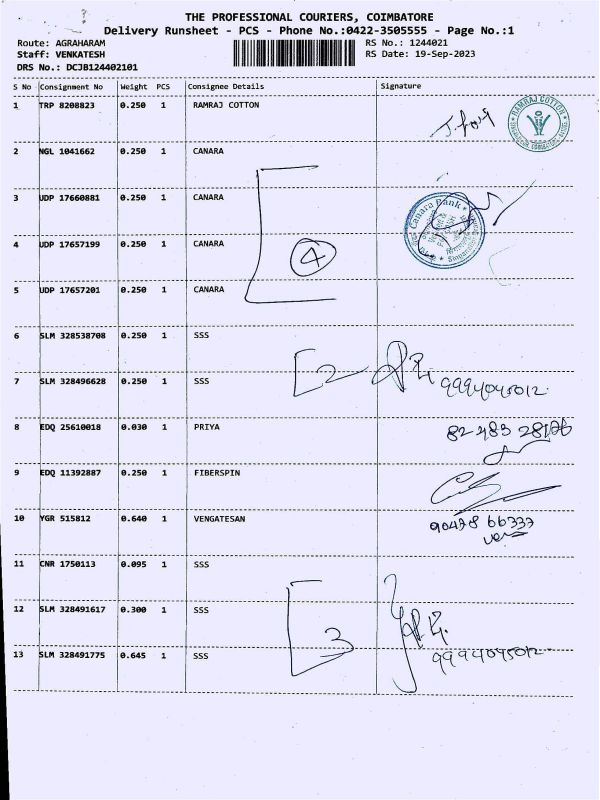 THE PROFESSIONAL COURIERS, COIMBATORE
Delivery Runsheet - PCS - Phone No.:0422-3505555 - Page No.:1
Route: AGRAHARAM RS No.: 1244021
Staff: VENKATESH RS Date: 19-Sep-2023
DRS No.: DCJB124402101
S No Consignment No Weight PCS Consignee Details Signature
1 TRP 8208823 0.250 1 RAMRAJ COTTON
RAMRAJ COTTON
2 NGL 1041662 0.250 1 CANARA
3 UDP 17660881 0.250 1 CANARA
Canara Bank
4 UDP 17657199 0.250 1 CANARA
4
5 UDP 17657201 0.250 1 CANARA
6 SLM 328538708 0.250 1 SSS
2
7 SLM 328496628 0.250 1 SSS 9994045012
8 EDQ 25610018 0.030 1 PRIYA
9 EDQ 11392887 0.250 1 FIBERSPIN
10 YGR 515812 0.640 1 VENGATESAN
11 CNR 1750113 0.095 1 SSS
12 SLM 328491617 0.300 1 SSS
3
13 SLM 328491775 0.645 1 SSS 9994045012